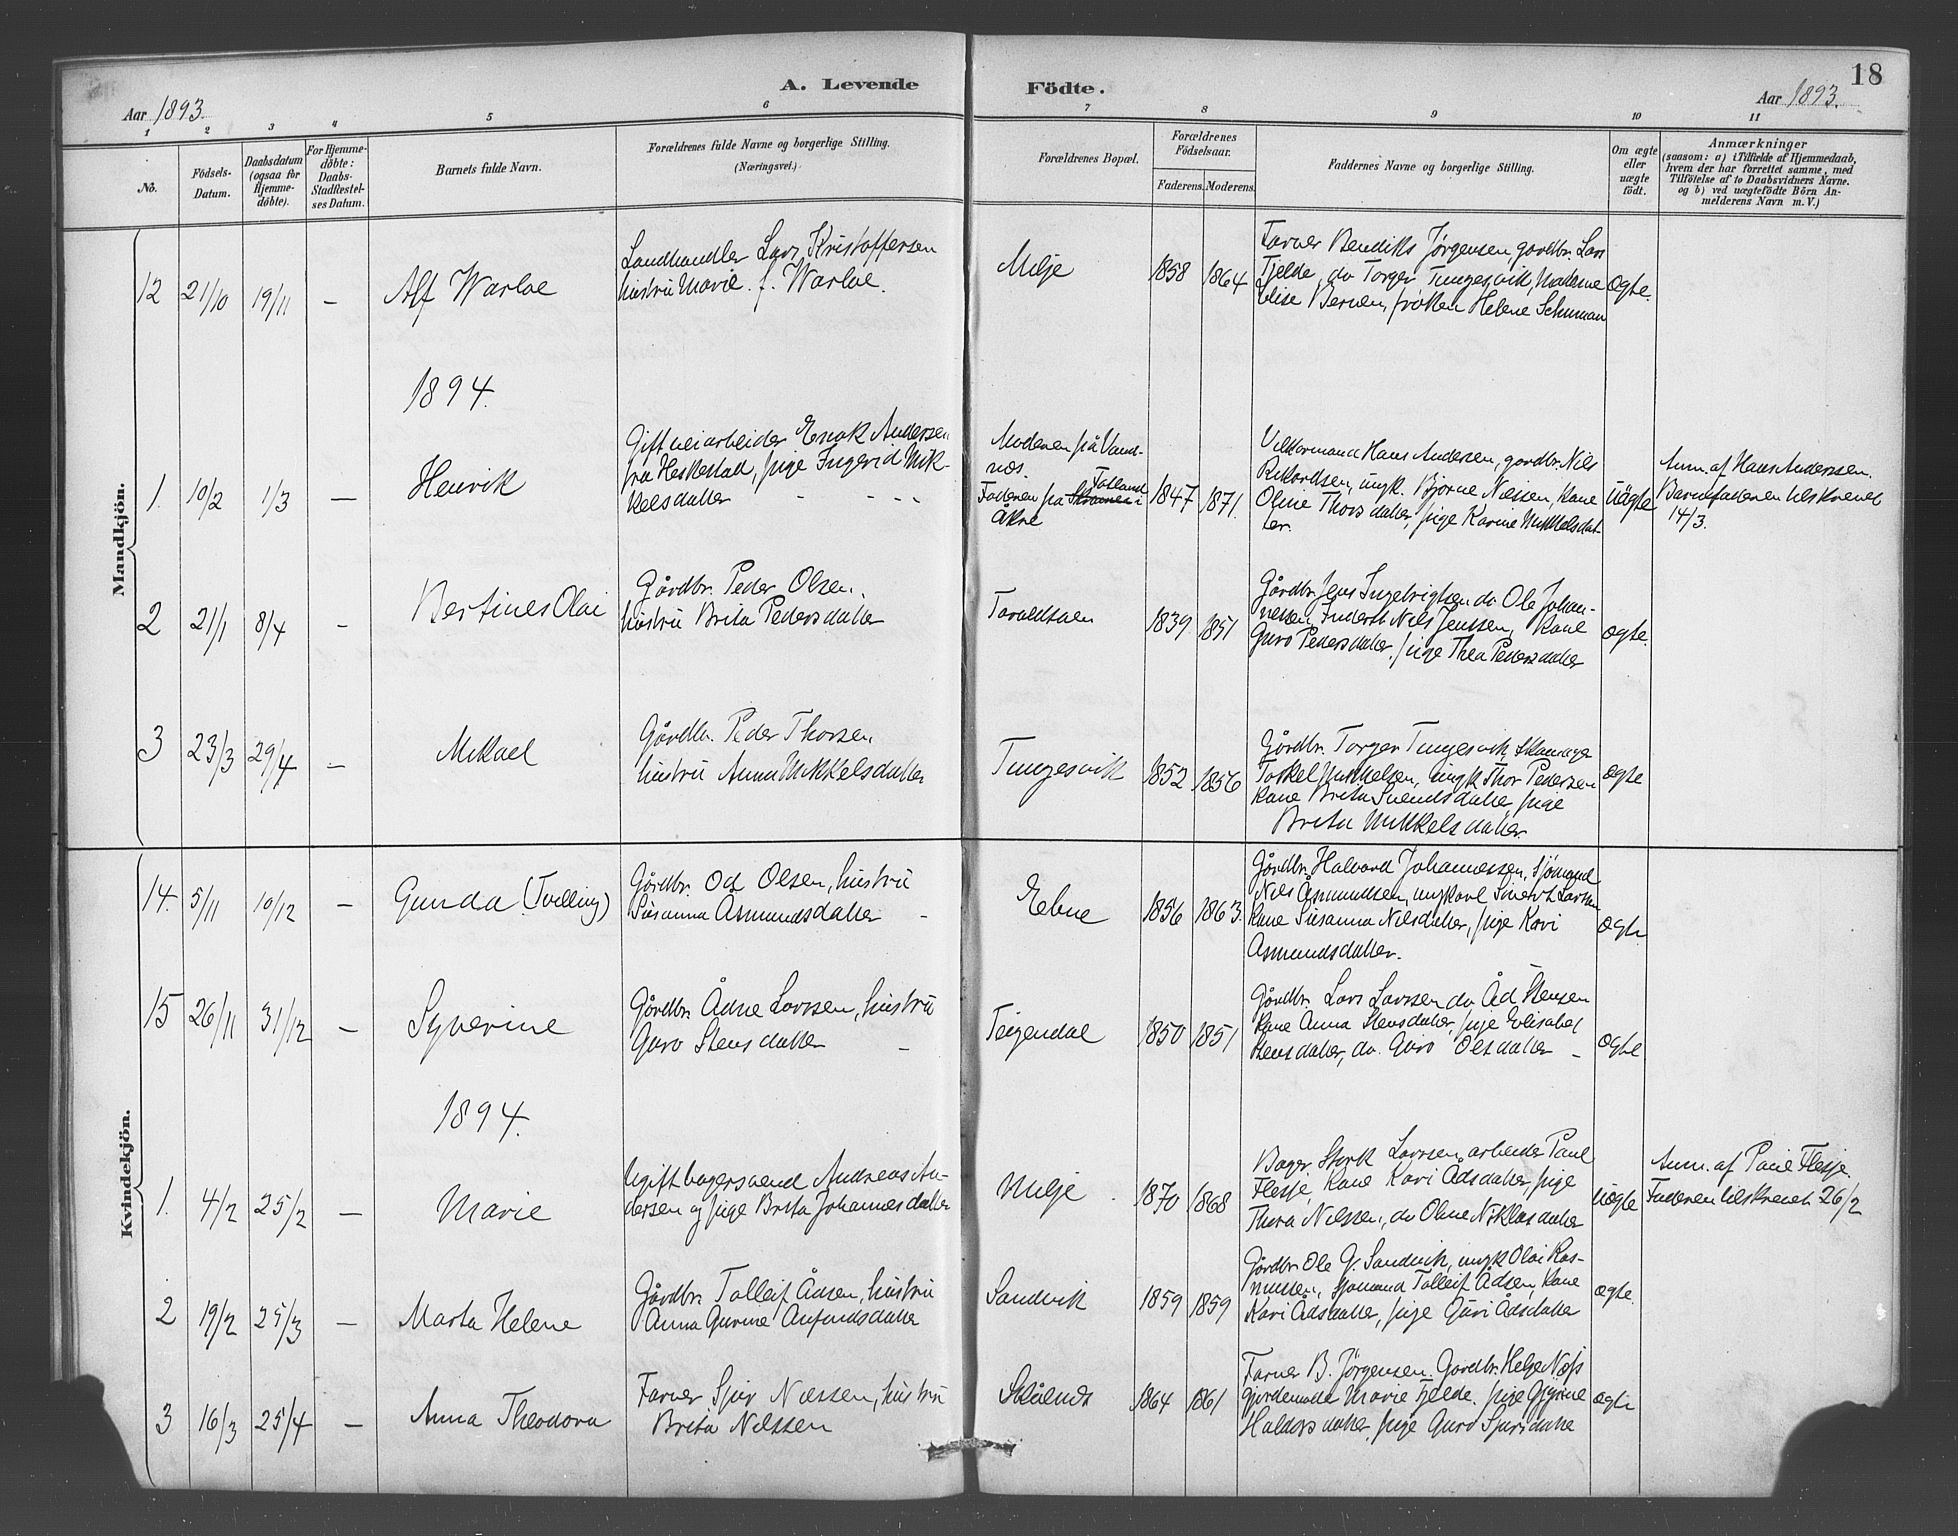 A. Levende Födte.
18
Aar 1893.
Aar 1893.
1 2 3 4 5 6 7 8 9 10 11
No.
Födsels-
Datum.
Daabsdatum
(ogsaa for
Hjemme-
döbte).
For Hjemme-
döbte:
Daabs-
Stadfæstel-
ses Datum.
Barnets fulde Navn.
Forældrenes fulde Navne og borgerlige Stilling.
(Næringsvei.)
Forældrenes Bopæl.
Forældrenes
Födselsaar.
Faderens. Moderens.
Faddernes Navne og borgerlige Stilling.
Om ægte
eller
uægte
födt.
Anmærkninger
(saasom: a) i Tilfælde af Hjemmedaab,
hvem der har forrettet samme, med
Tilföielse af to Daabsvidners Navne.
og b) ved uægtefödte Börn An-
melderens Navn m. V.)
Mandkjön.
12 21/10 19/11 – Alf Warloe
Landhandler Lars Kristoffersen
hustru Marie f. Warloe.
Milje 1858 1864
Farver Bendiks Jørgensen, gårdbr. Lars
Fjelde, do Torger Tungesvik, Madame
Elise Bernen, frøken Helene Schuman
ægte.
1894.
1. 10/2 1/3 – Henrik
Gift veiarbeider Enok Andersen
fra Heskestad, pige Ingerid Mik-
kelsdatter
Moderen på Vand-
næs.
Faderen på Tatland i
Åkre
1847 1871.
Hans Andersen, gårdbr. Nils
Rikardsen, ungk. Bjørne Nilssen, kone
Oline Thorsdatter, pige Karine Mikkelsdat-
ter.
uægte
Anm. af Hans Andersen.
Barnefaderen tilskrevet
14/3.
2 21/1 8/4 – Bertines Olai
Gårdbr. Peder Olsen,
hustru Brita Pedersdatter
Taraldsøen 1839 1851
Gårdbr. Jens Ingebrigtsen do Ole Johan-
nessen, Inderst Nils Jenssen, kone
Guro Pedersdatter, pige Thea Pedersdatter
ægte.
3 23/3 29/4 – Mikael
Gårdbr. Peder Thorsen,
hustru Anna Mikkelsdatter
Tungesvik 1852 1856
Gårdbr. Torger Tungesvik,
Torkel Mikkelsen, ungk Thor Pedersen
kone Brita Svendsdatter pige
Brita Mikkelsdatter.
ægte
Kvindekjön.
14. 5/11 10/12 – Gunda (Tvilling)
Gårdbr. Od Olsen, hustru
Susanna Åsmundsdatter –
Ebne 1856 1863.
Gårdbr. Halvard Johannessen, Sjømand
Nils Åsmundsen, ungkarl Sivert Larsen
kone Susanna Nilsdatter, pige Kari
Åsmundsdatter.
ægte
15 26/11 31/12 – Syverine
Gårdbr. Ådne Larssen, hustru
Guro Stensdatter –
Teigendal 1850 1851
Gårdbr. Lars Larssen do Åd Stensen
kone Anna Stensdatter, pige Elisabet
Stensdatter, do. Guro Olsdatter –
ægte
1894.
1. 4/2 25/2 – Marie
Ugift bagersvend Andreas An-
dersen og pige Brita Johannesdatter
Milje 1870 1868
Bager Stork Larssen, arbeider Paul
Flesje, kone Kari Ådsdatter, pige
Thora Nilssen, do Oline Niklasdatter
uægte
Anm. af Paul Flesje
Faderen tilskrevet 26/2
2 19/2 25/3 – Marta Helene
Gårdbr. Tolleif Ådsen, hustru
Anna Gurine Anfindsdatter
Sandvik 1859 1859
Gårdbr. Ole G. Sandvik, ungk Olai Ras-
mussen, Sjømand Tolleif Ådsen, kone
Kari Ådsdatter, pige Guri Ådsdatter
ægte.
3 16/3 25/4 – Anna Theodora
Farver Sjur Næssen, hustru
Brita Nilssen
1864 1861
Farver B. Jørgensen, Gårdbr. Helge Næs
gjordemoder Marie Fjelde, pige
Haldorsdatter, pige Guro Sjursdatter
ægte